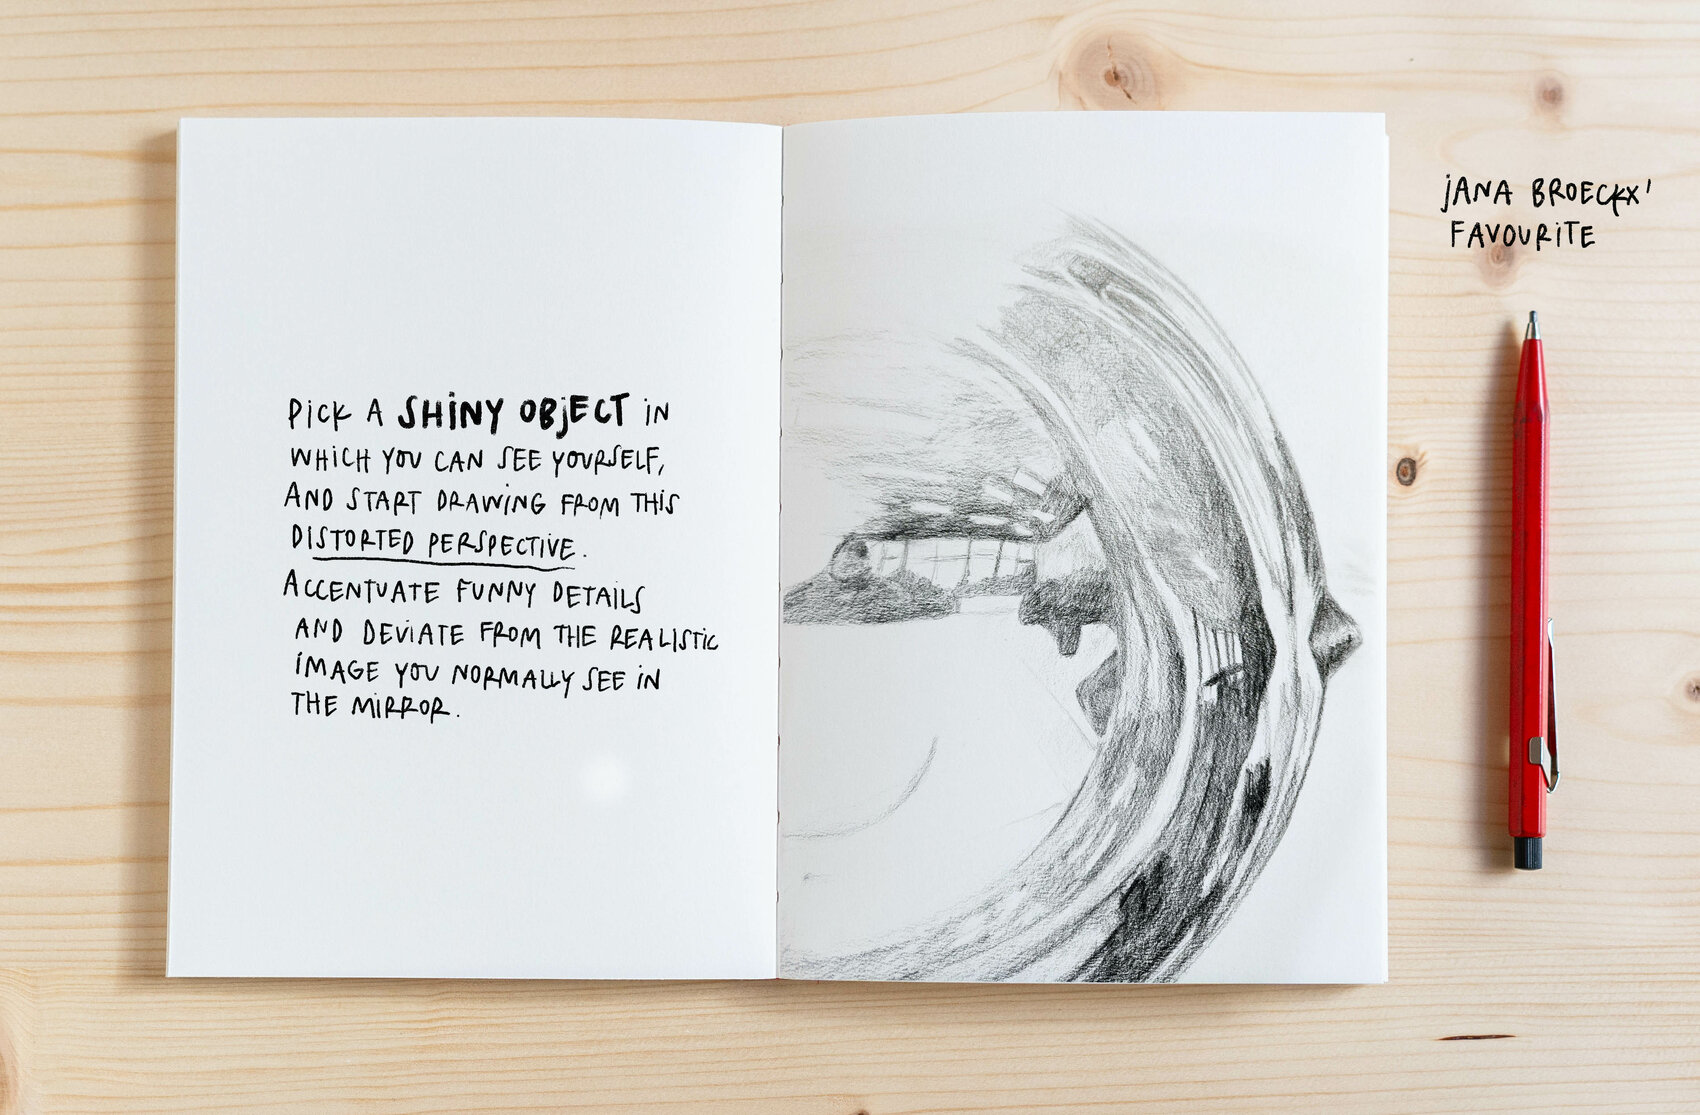 PICK A SHINY OBJECT IN
WHICH YOU CAN SEE YOURSELF,
AND START DRAWING FROM THIS
DISTORTED PERSPECTIVE.
ACCENTUATE FUNNY DETAILS
AND DEVIATE FROM THE REALISTIC
IMAGE YOU NORMALLY SEE IN
THE MIRROR.
JANA BROECKX'
FAVOURITE